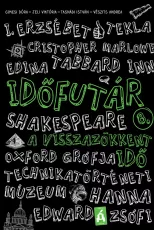 GIMESI DÓRA · JELI VIKTÓRIA · TASNÁDI ISTVÁN · VÉSZITS ANDREA
I. ERZSÉBET TEKLA
CRISTOPHER MARLOWE
EDINA TABBARD INN
IDŐFUTÁR
SHAKESPEARE 8.
A VISSZAZÖKKENT
OXFORD GRÓFJA IDŐ
TECHNIKATÖRTÉNETI
MÚZEUM HANNA
EDWARD ZSÓFI